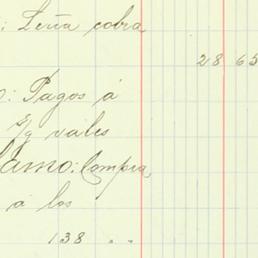 : Leña cobra
28 65
o: Pagos á
s/g vales
lamo: Compra
á los
138 " "